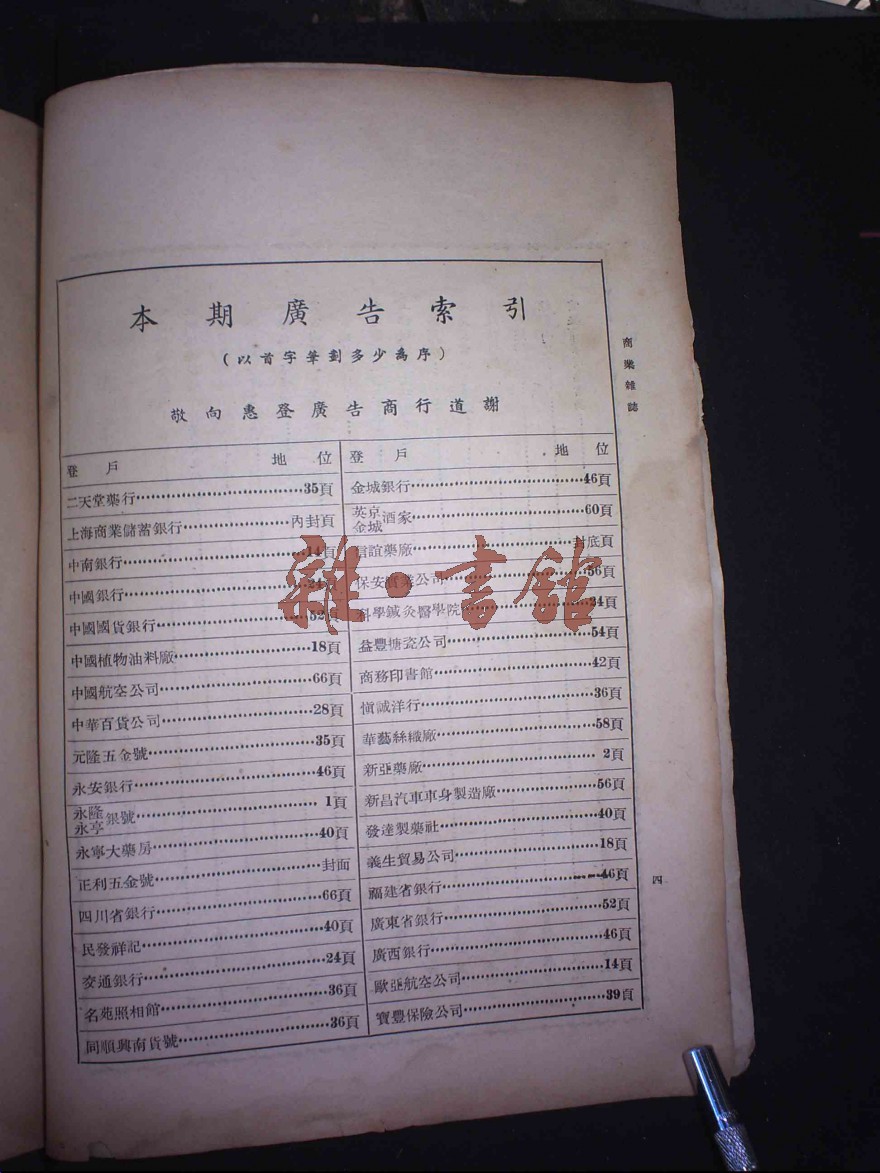 本期廣告索引
(以首字筆劃多少為序)
敬向惠登廣告商行道謝
登戶 地位
二天堂藥行 35頁
上海商業儲蓄銀行 內封頁
中南銀行 14頁
中國銀行 24頁
中國國貨銀行 52頁
中國植物油料廠 18頁
中國航空公司 66頁
中華百貨公司 28頁
元隆五金號 35頁
永安銀行 46頁
永隆永亨銀號 1頁
永寧大藥房 40頁
正利五金號 封面
四川省銀行 66頁
民發祥記 40頁
交通銀行 24頁
名苑照相館 36頁
同順興南貨號 36頁
登戶 地位
金城銀行 46頁
英京金城酒家 60頁
信誼藥廠 封底頁
保安實業公司 56頁
科學鍼灸醫學院 34頁
益豐搪瓷公司 54頁
商務印書館 42頁
愼誠洋行 36頁
華藝絲織廠 58頁
新亞藥廠 2頁
新昌汽車車身製造廠 56頁
發達製藥社 40頁
義生貿易公司 18頁
福建省銀行 46頁
廣東省銀行 52頁
廣西銀行 46頁
歐亞航空公司 14頁
寶豐保險公司 39頁
商業雜誌
四
雜·書館